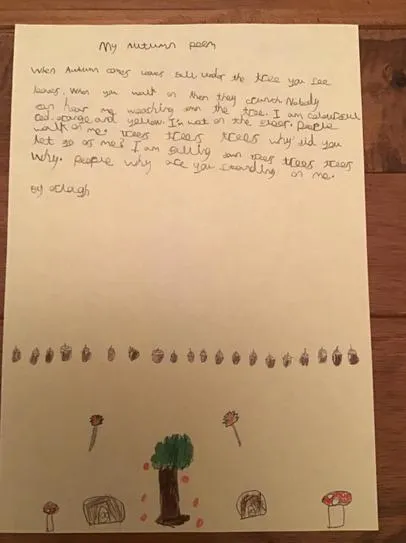 My Autumn poem
When Autumn comes leaves fall under the tree you see
leaves. When you walk on them they crunch. Nobody
can hear me weashing on the tree. I am colourfull
red, orange and yellow. I'm wet on the
walk on me. trees trees trees why did you
let go of me? I am falling trees trees trees
Why. people why are you standing on me.
By